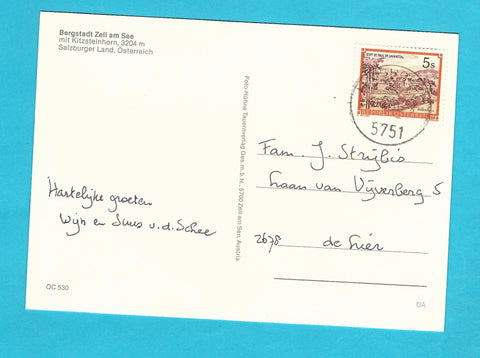 Bergstadt Zell am See
mit Kitzsteinhorn, 3204 m
Salzburger Land, Österreich
Foto-Hühne Tauernverlag Ges.m.b.H., 5700 Zell am See, Austria.
5s
REPUBLIK ÖSTERREICH
5751
Fam. J. Strijbis
Laan van Vijverberg 5
2678 de Lier
Hartelijke groeten
Wijn en Suus v.d. Schee
OC 530
OA